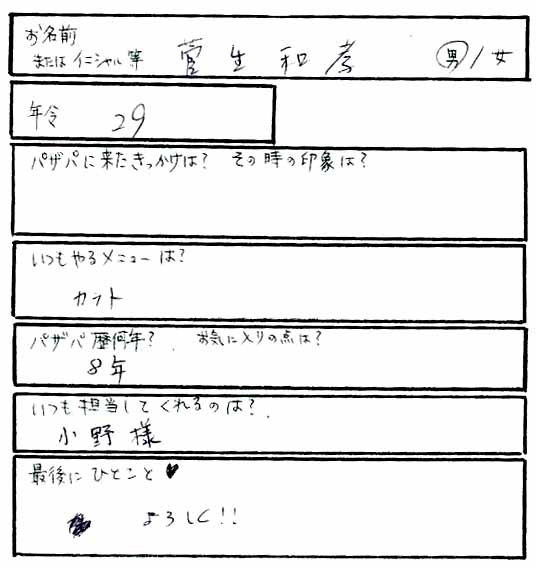 お名前
または イニシャル 等 菅生 和孝 男 / 女
年令 29
パザパに来たきっかけは? その時の印象は?
いつもやるメニューは?
カット
パザパ歴何年? お気に入りの点は?
8年
いつも担当してくれるのは?
小野様
最後にひとこと♥
よろしく!!